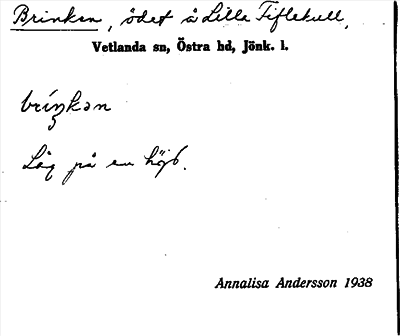 Brinken, ödet å Lilla Fiflekull,
Vetlanda sn, Östra bd, Jönk. l.
bríŋkən
Låg på en höjd.
Annalisa Andersson 1938